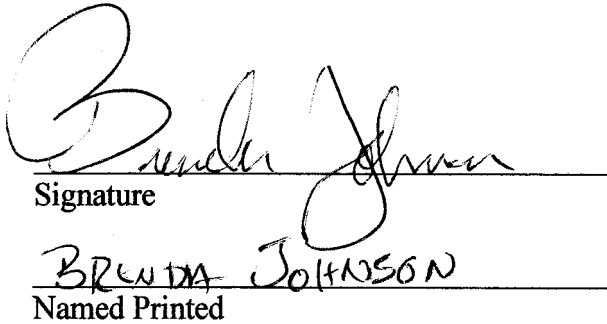 Brenda Johnson
Signature
BRENDA JOHNSON
Named Printed